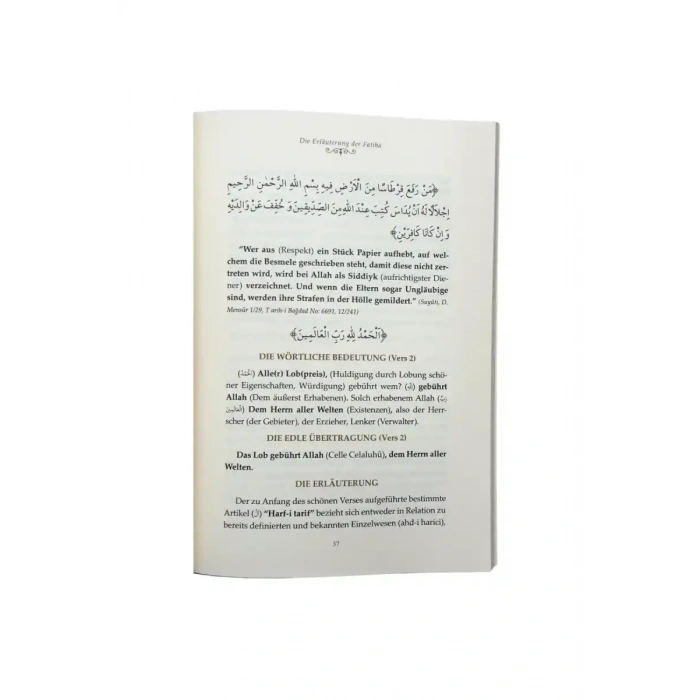 Die Erläuterung der Fatiha
﴿مَنْ رَفَعَ قِرْطَاسًا مِنَ الْاَرْضِ فِيهِ بِسْمِ اللهِ الرَّحْمٰنِ الرَّحِيمِ
اِجْلَالًا لَهُ اَنْ يُدَاسَ كُتِبَ عِنْدَ اللهِ مِنَ الصِّدِّيقِينَ وَ خُفِّفَ عَنْ وَالِدَيْهِ
وَ اِنْ كَانَا كَافِرَيْنِ﴾
"Wer aus (Respekt) ein Stück Papier aufhebt, auf wel-
chem die Besmele geschrieben steht, damit diese nicht zer-
treten wird, wird bei Allah als Siddiyk (aufrichtigster Die-
ner) verzeichnet. Und wenn die Eltern sogar Ungläubige
sind, werden ihre Strafen in der Hölle gemildert." (Suyûti, D.
Mensûr 1/29, Tarih-i Bağdad No: 6691, 12/241)
﴿اَلْحَمْدُ لِلهِ رَبِّ الْعَالَمِينَ﴾
DIE WÖRTLICHE BEDEUTUNG (Vers 2)
(اَلْحَمْدُ) Alle(r) Lob(preis), (Huldigung durch Lobung schö-
ner Eigenschaften, Würdigung) gebührt wem? (لِلهِ) gebührt
Allah (Dem äußerst Erhabenen). Solch erhabenem Allah (رَبِّ
الْعَالَمِينَ) Dem Herrn aller Welten (Existenzen), also der Herr-
scher (der Gebieter), der Erzieher, Lenker (Verwalter).
DIE EDLE ÜBERTRAGUNG (Vers 2)
Das Lob gebührt Allah (Celle Celaluhû), dem Herrn aller
Welten.
DIE ERLÄUTERUNG
Der zu Anfang des schönen Verses aufgeführte bestimmte
Artikel (اَلْ) "Harf-i tarif" bezieht sich entweder in Relation zu
bereits definierten und bekannten Einzelwesen (ahd-i harici),
37